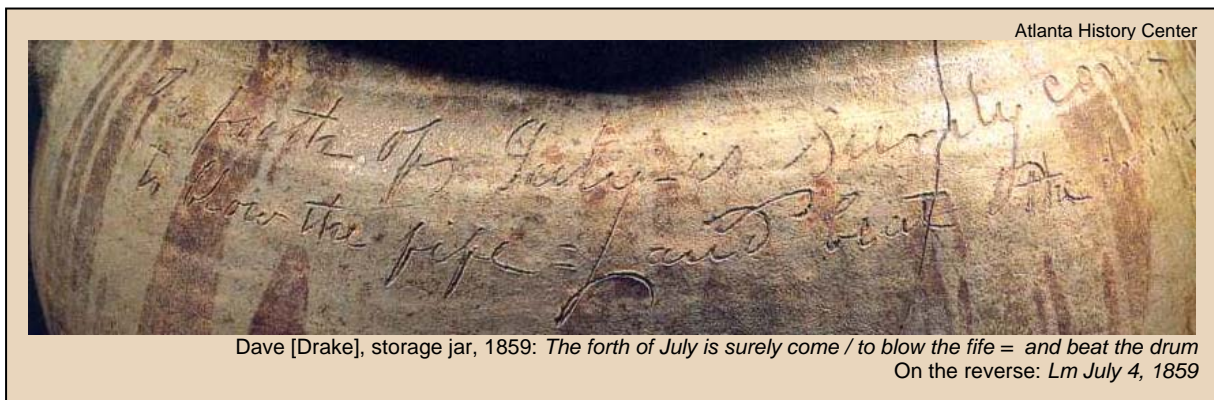 Atlanta History Center
The forth of July = is surely come
to blow the fife = and beat the drum
Dave [Drake], storage jar, 1859: The forth of July is surely come / to blow the fife = and beat the drum
On the reverse: Lm July 4, 1859